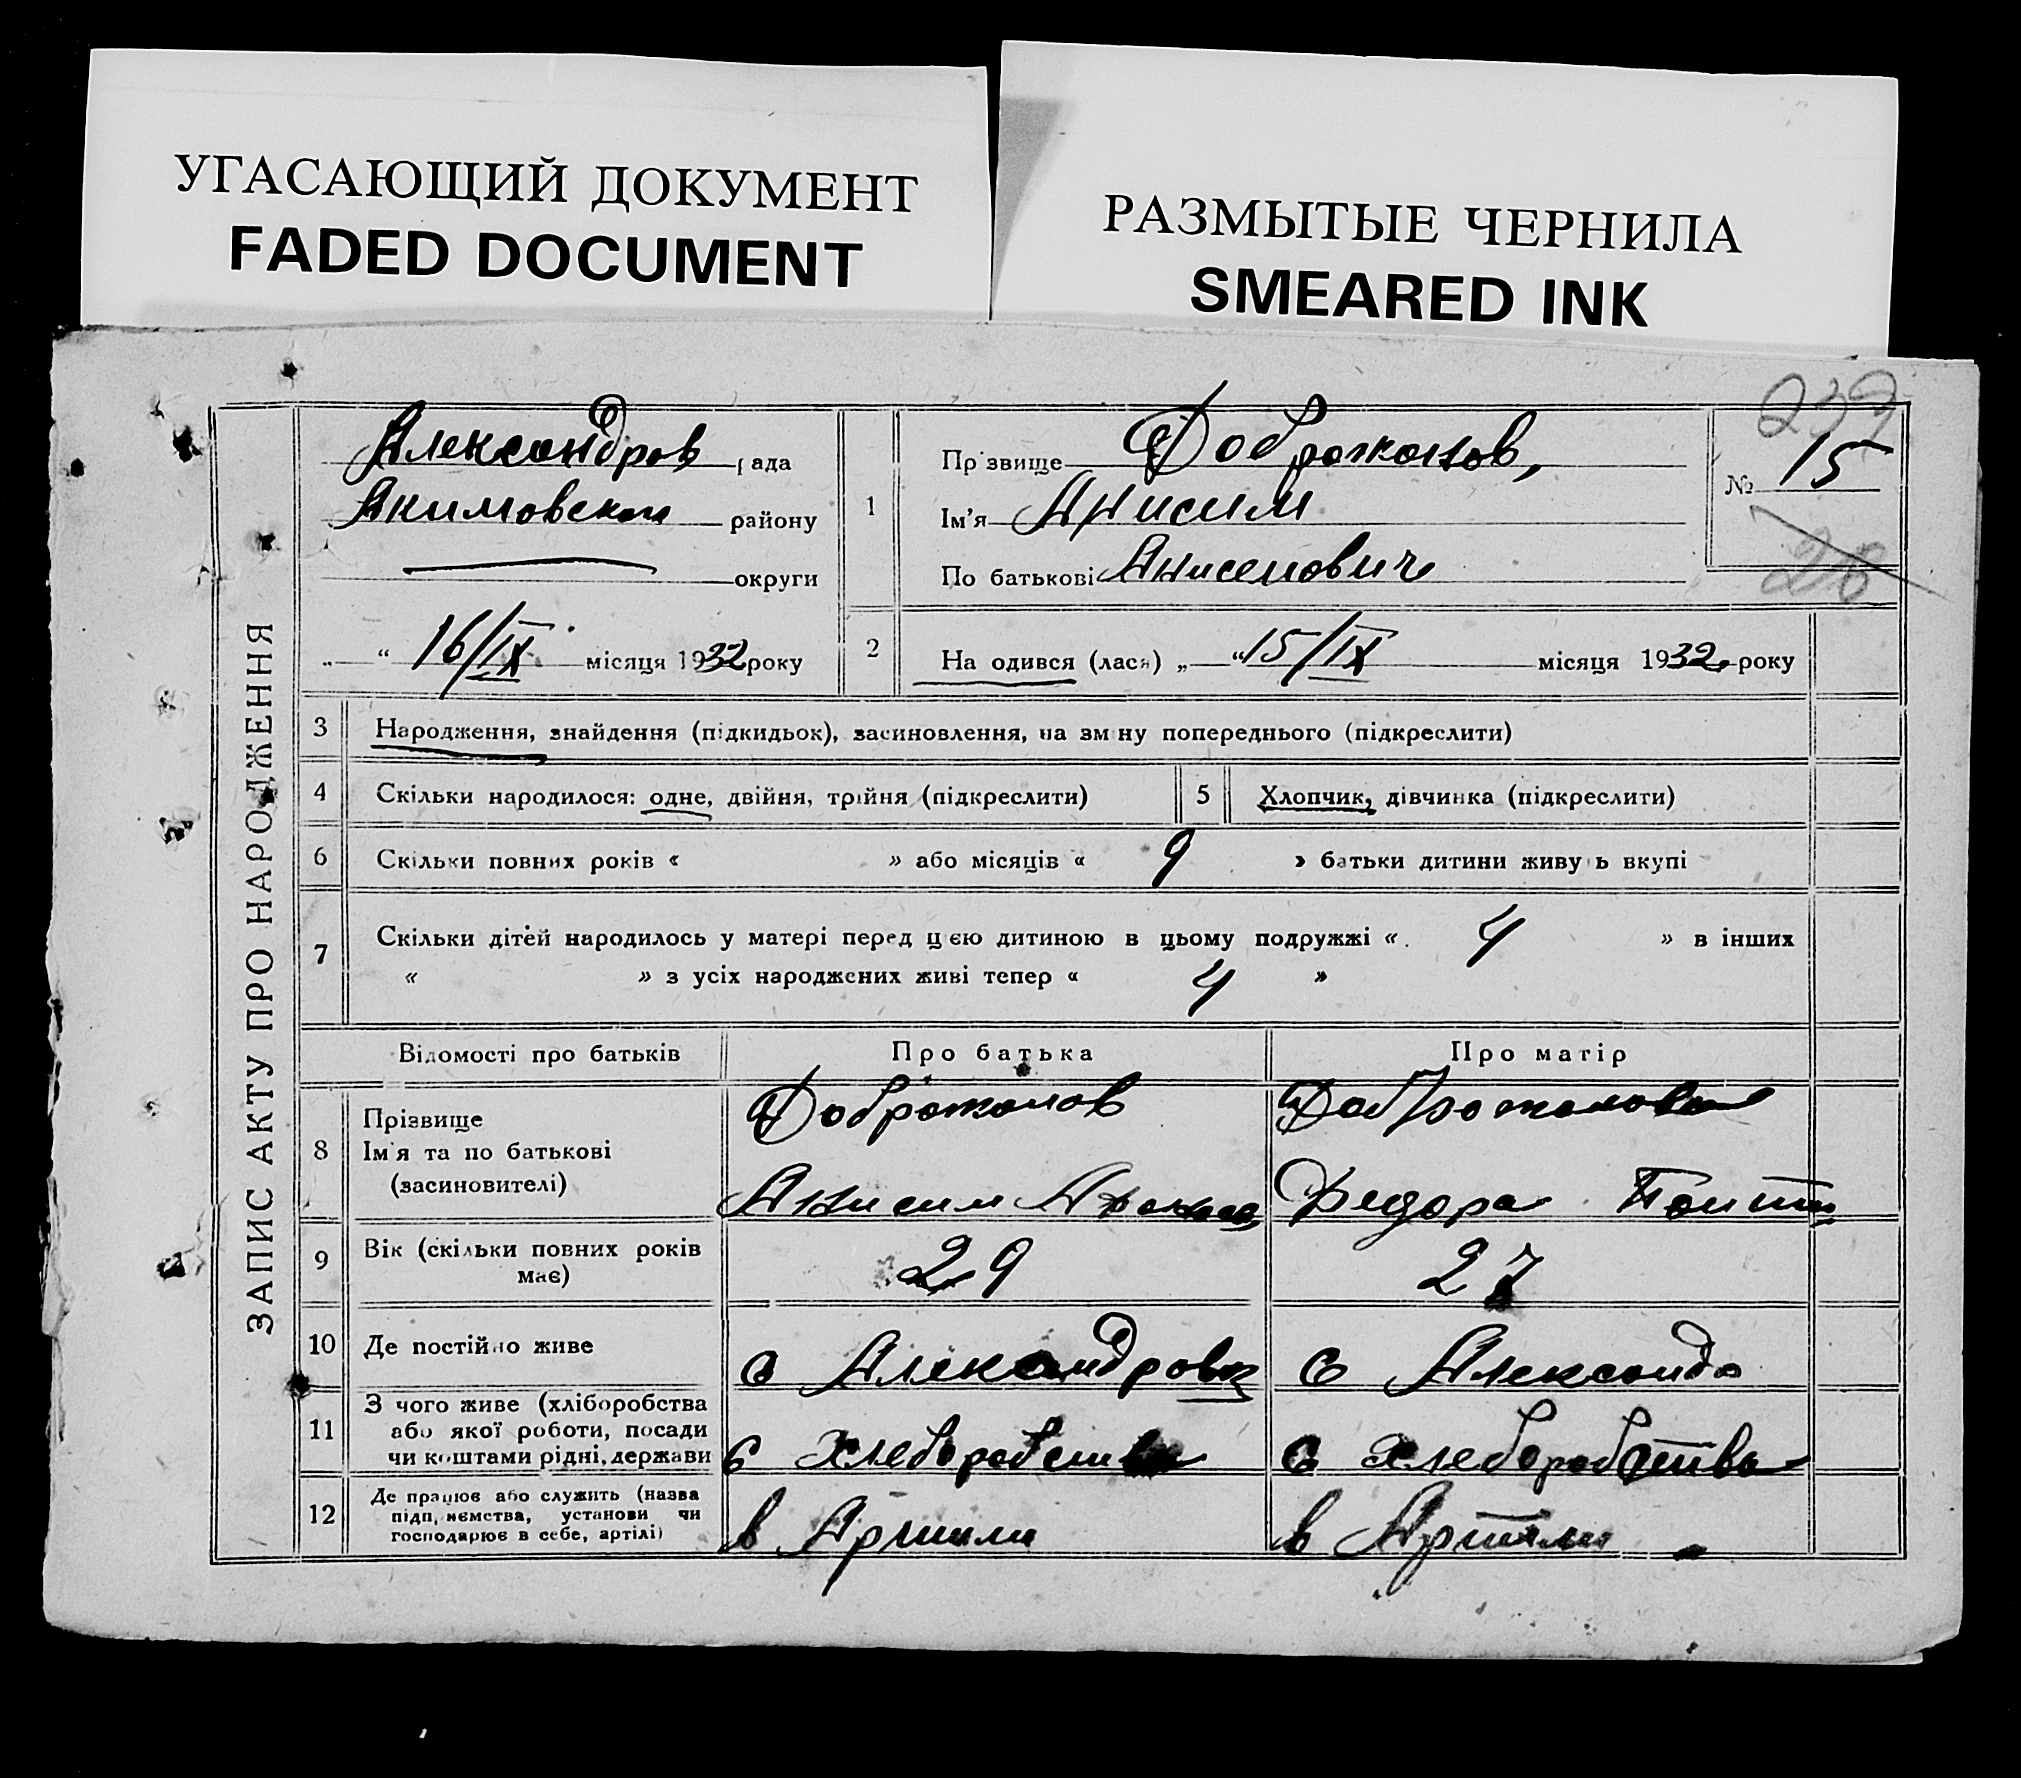 УГАСАЮЩИЙ ДОКУМЕНТ
FADED DOCUMENT
РАЗМЫТЫЕ ЧЕРНИЛА
SMEARED INK
ЗАПИС АКТУ ПРО НАРОДЖЕННЯ
Александров рада
Акимовском району
округи
„ “ 16/IX місяця 1932 року
1
Прізвище Доброжанов,
Ім’я Анисим
По батькові Анисемович
239
№ 15
28
2
На одився (лася) „ “ 15/IX місяця 1932 року
3 Народження, знайдення (підкидьок), засиновлення, на зміну попереднього (підкреслити)
4 Скільки народилося: одне, двійня, трійня (підкреслити)
5 Хлопчик, дівчинка (підкреслити)
6 Скільки повних років « » або місяців « 9 » батьки дитини живуть вкупі
7 Скільки дітей народилось у матері перед цією дитиною в цьому подружжі « 4 » в інших
« » з усіх народжених живі тепер « 4 »
Відомості про батьків Про батька Про матір
8 Прізвище
Ім’я та по батькові
(засиновителі)
Доброжанов
Анисим
Доброжанова
Федора
9 Вік (скільки повних років
має)
29 27
10 Де постійно живе
с Александровк
с Александр
11 З чого живе (хліборобства
або якої роботи, посади
чи коштами рідні, держави
с Хлеборобства
с Хлеборобства
12 Де працює або служить (назва
підприємства, установи чи
господарює в себе, артілі)
в Артили
в Артили